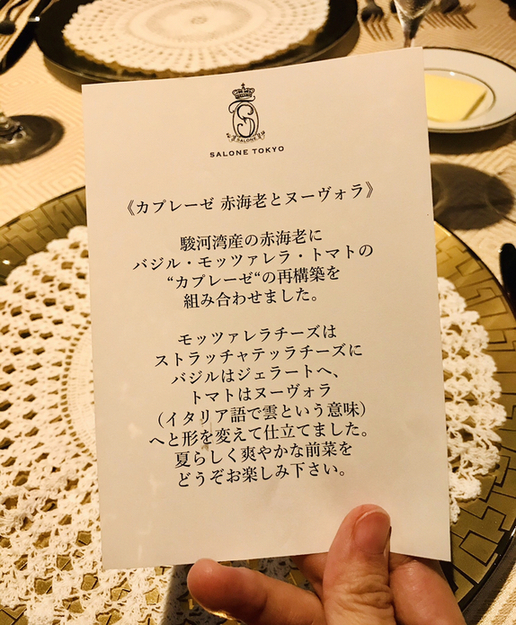 SALONE
SALONE TOKYO
《カプレーゼ 赤海老とヌーヴォラ》
駿河湾産の赤海老に
バジル・モッツァレラ・トマトの
“カプレーゼ“の再構築を
組み合わせました。
モッツァレラチーズは
ストラッチャテッラチーズに
バジルはジェラートへ、
トマトはヌーヴォラ
(イタリア語で雲という意味)
へと形を変えて仕立てました。
夏らしく爽やかな前菜を
どうぞお楽しみ下さい。